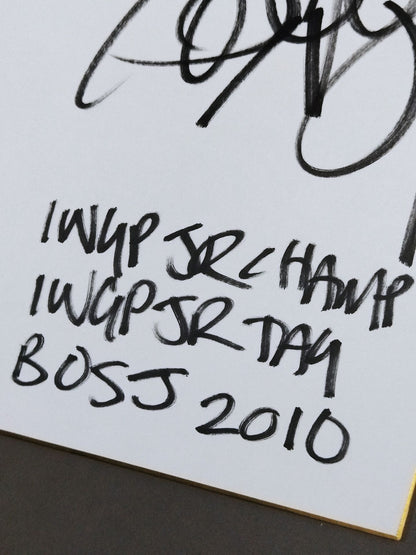 IWGP JR CHAMP
IWGP JR TAG
BOSJ 2010